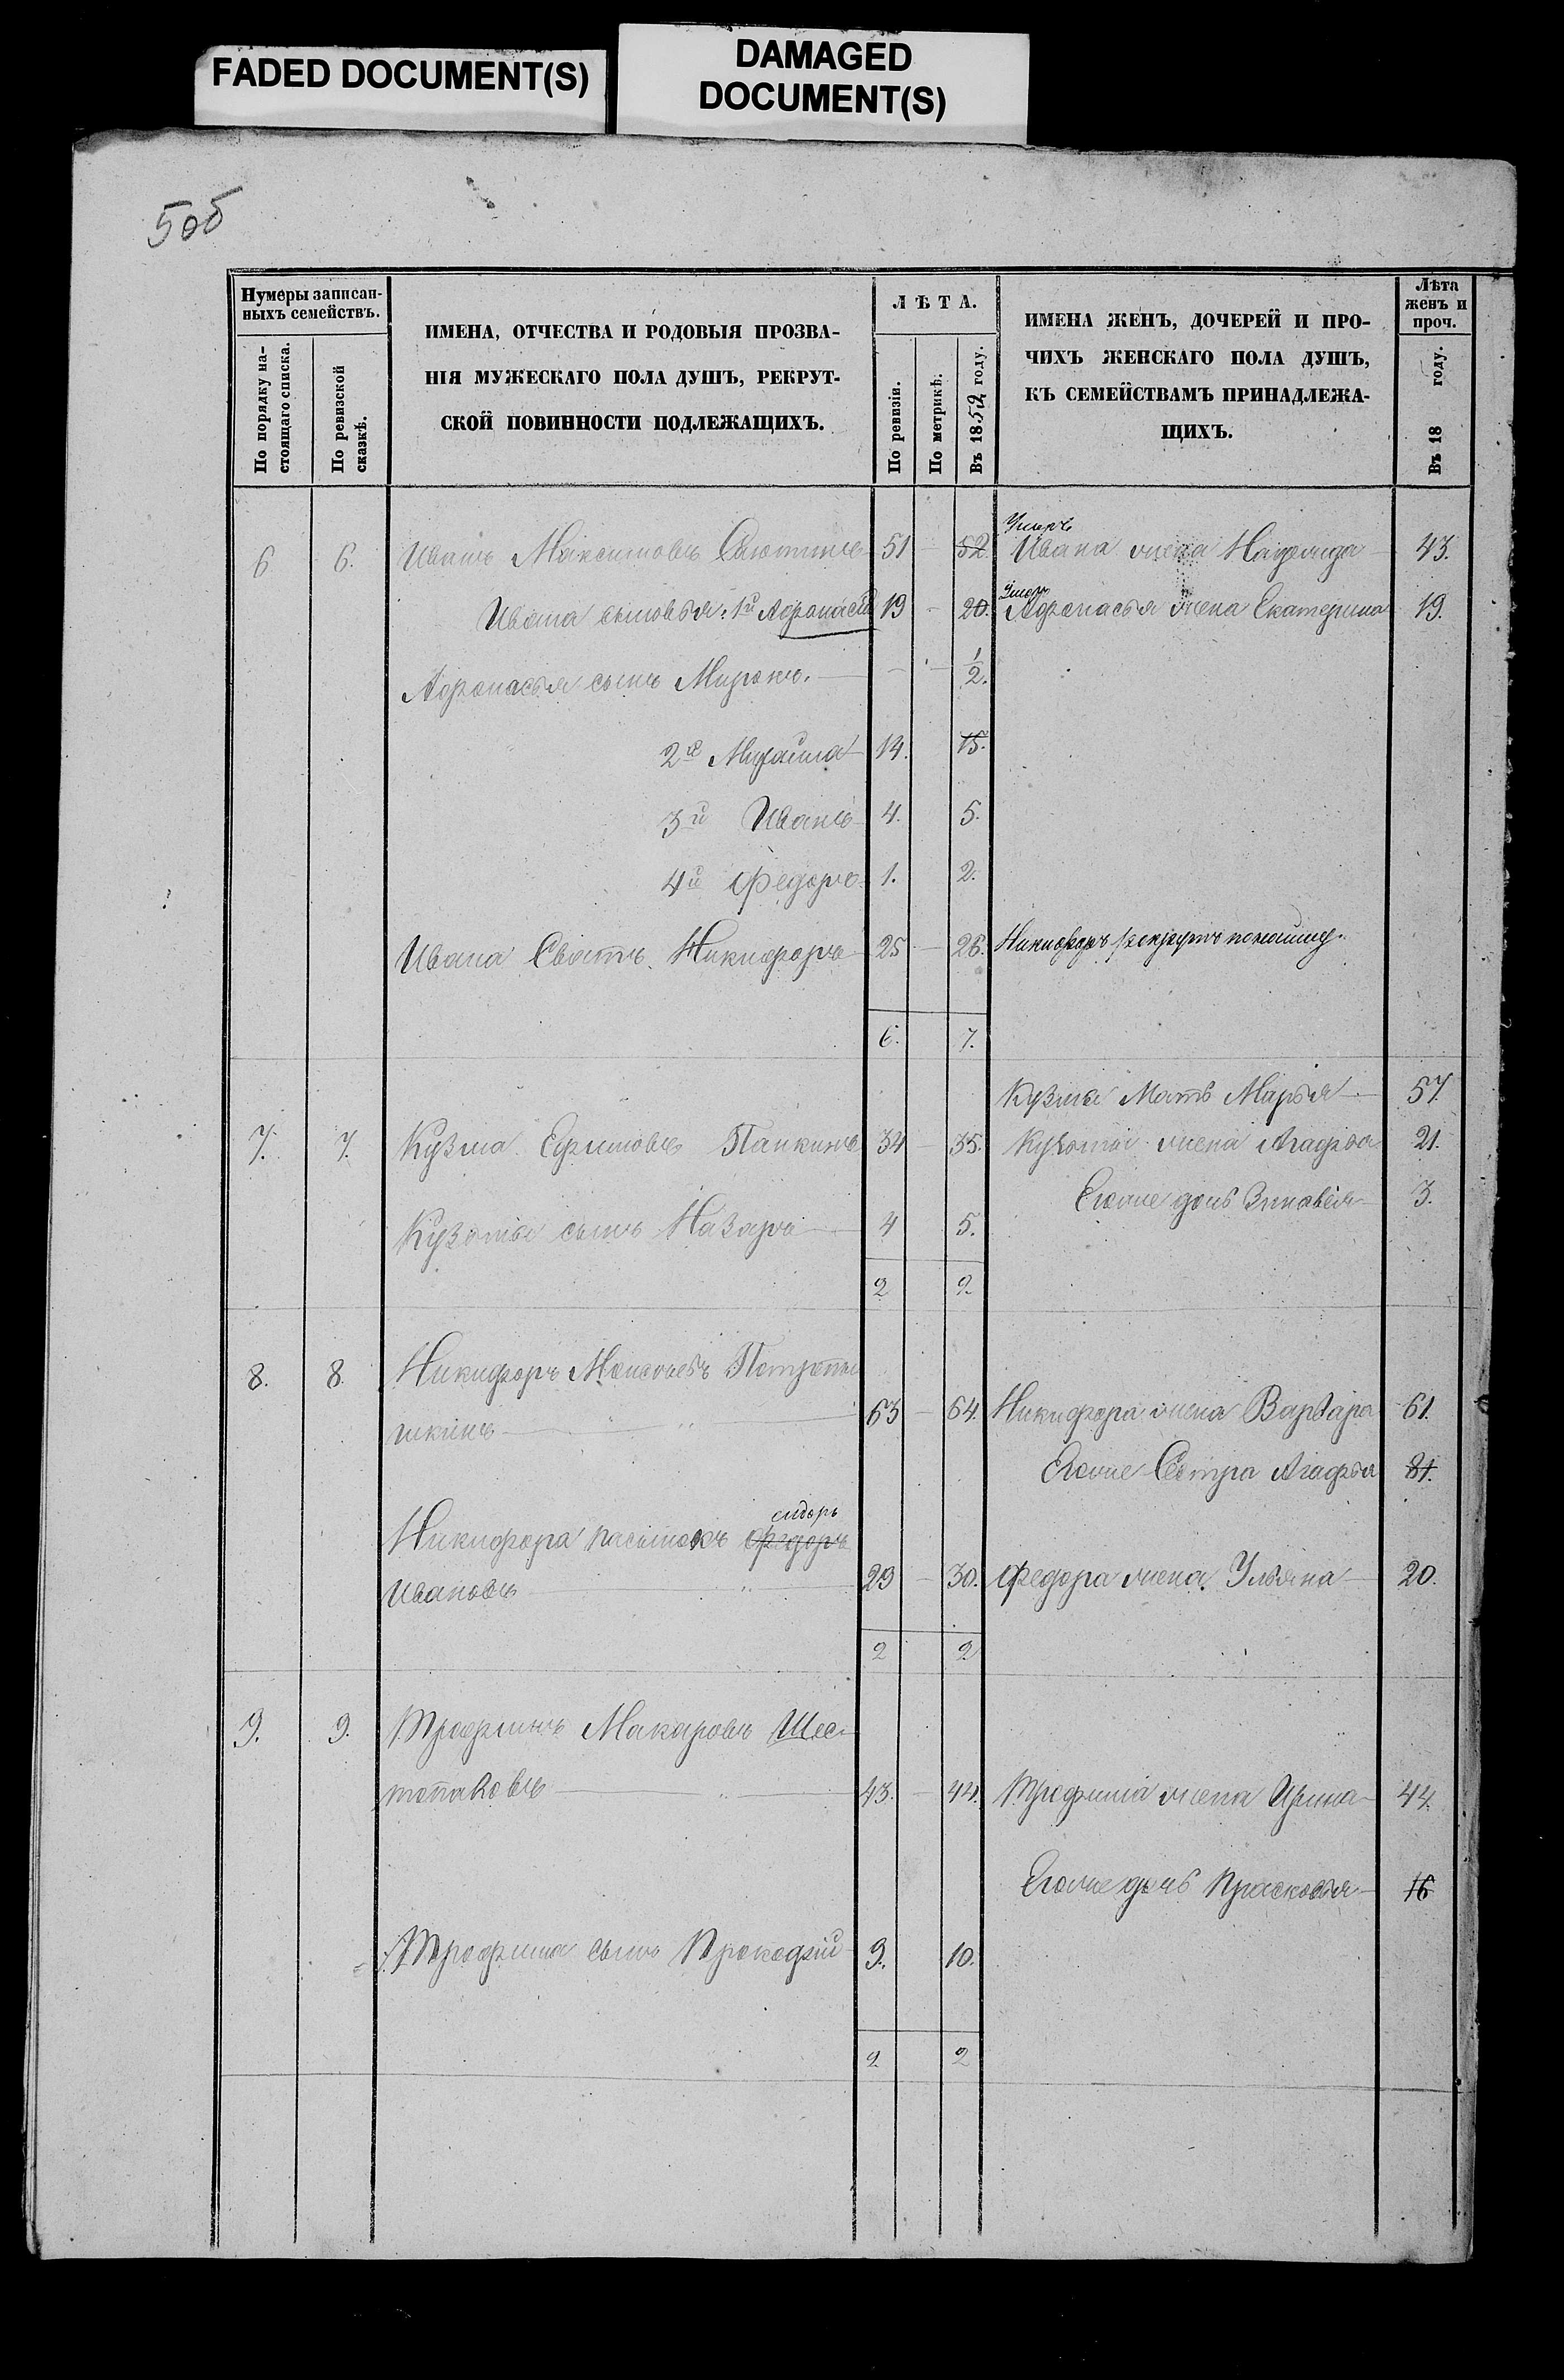 FADED DOCUMENT(S)
DAMAGED
DOCUMENT(S)
5об
Нумеры записан-
ныхъ семействъ.
По порядку на-
стоящаго списка.
По ревизской
сказкѣ.
ИМЕНА, ОТЧЕСТВА И РОДОВЫЯ ПРОЗВА-
НІЯ МУЖЕСКАГО ПОЛА ДУШЪ, РЕКРУТ-
СКОЙ ПОВИННОСТИ ПОДЛЕЖАЩИХЪ.
ЛѢТА.
По ревизіи.
По метрикѣ.
Въ 1852 году.
ИМЕНА ЖЕНЪ, ДОЧЕРЕЙ И ПРО-
ЧИХЪ ЖЕНСКАГО ПОЛА ДУШЪ,
КЪ СЕМЕЙСТВАМЪ ПРИНАДЛЕЖА-
ЩИХЪ.
Лѣта
женъ и
проч.
Въ 18 году.
Умеръ
6 6. Иванъ Максимовъ 51 – 52 Ивана жена Надежда 43.
Умеръ
Ивана сыновья: 1й Афонасій 19 – 20. Афонасья жена Екатерина 19.
Афонасья сынъ Миронъ. – – 1/2.
2й Михайла 14. 15.
3й Иванъ 4. 5.
4й Федоръ 1. 2.
Ивана Сватъ Никифоръ 25 – 26. Никифоръ
6. 7.
Кузмы Мать Марья 57
7. 7. Кузма Ефимовъ Папкинъ 34 – 35. Кузьмы жена Агафья 21.
Егоже дочь Зиновея 3.
Кузьмы сынъ Назаръ 4 5.
2 2
8. 8. Никифоръ Моисеевъ
шкинъ 63 – 64. Никифора жена Варвара 61.
Егоже Сестра Агафья 81.
сидоръ
Никифора пасынокъ федоръ
Ивановъ 29 – 30. Федора жена Ульяна 20.
2 2
9. 9. Трофимъ Макаровъ Шес-
топаловъ 43. – 44. Трофима жена Ирина 44.
Егоже дочь Прасковья 16
Трофима сынъ Прокофій 9. 10.
2 2